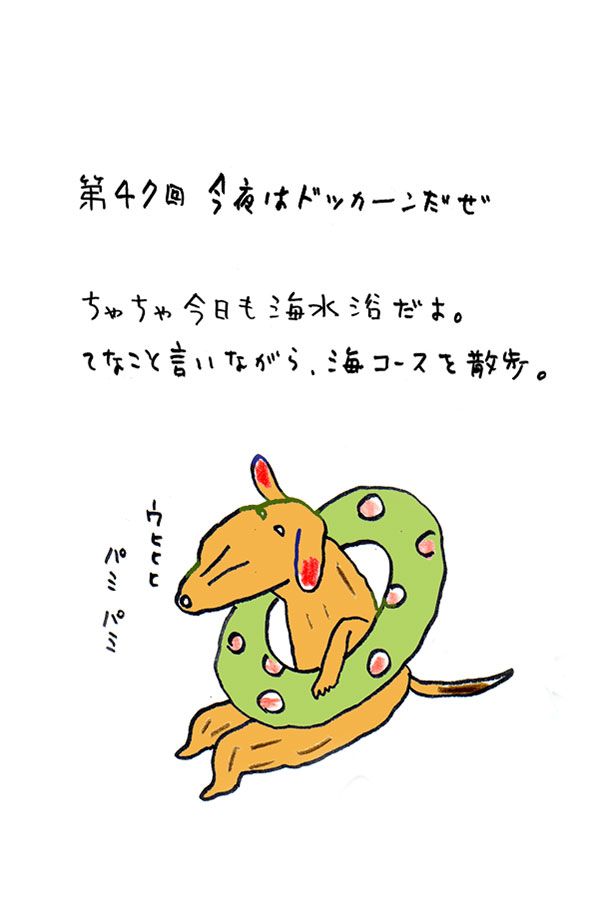 第47回 今夜はドッカーンだぜ
ちゃちゃ今日も海水浴だよ。
てなこと言いながら、海コースを散歩。
ウヒヒヒ
パミパミ